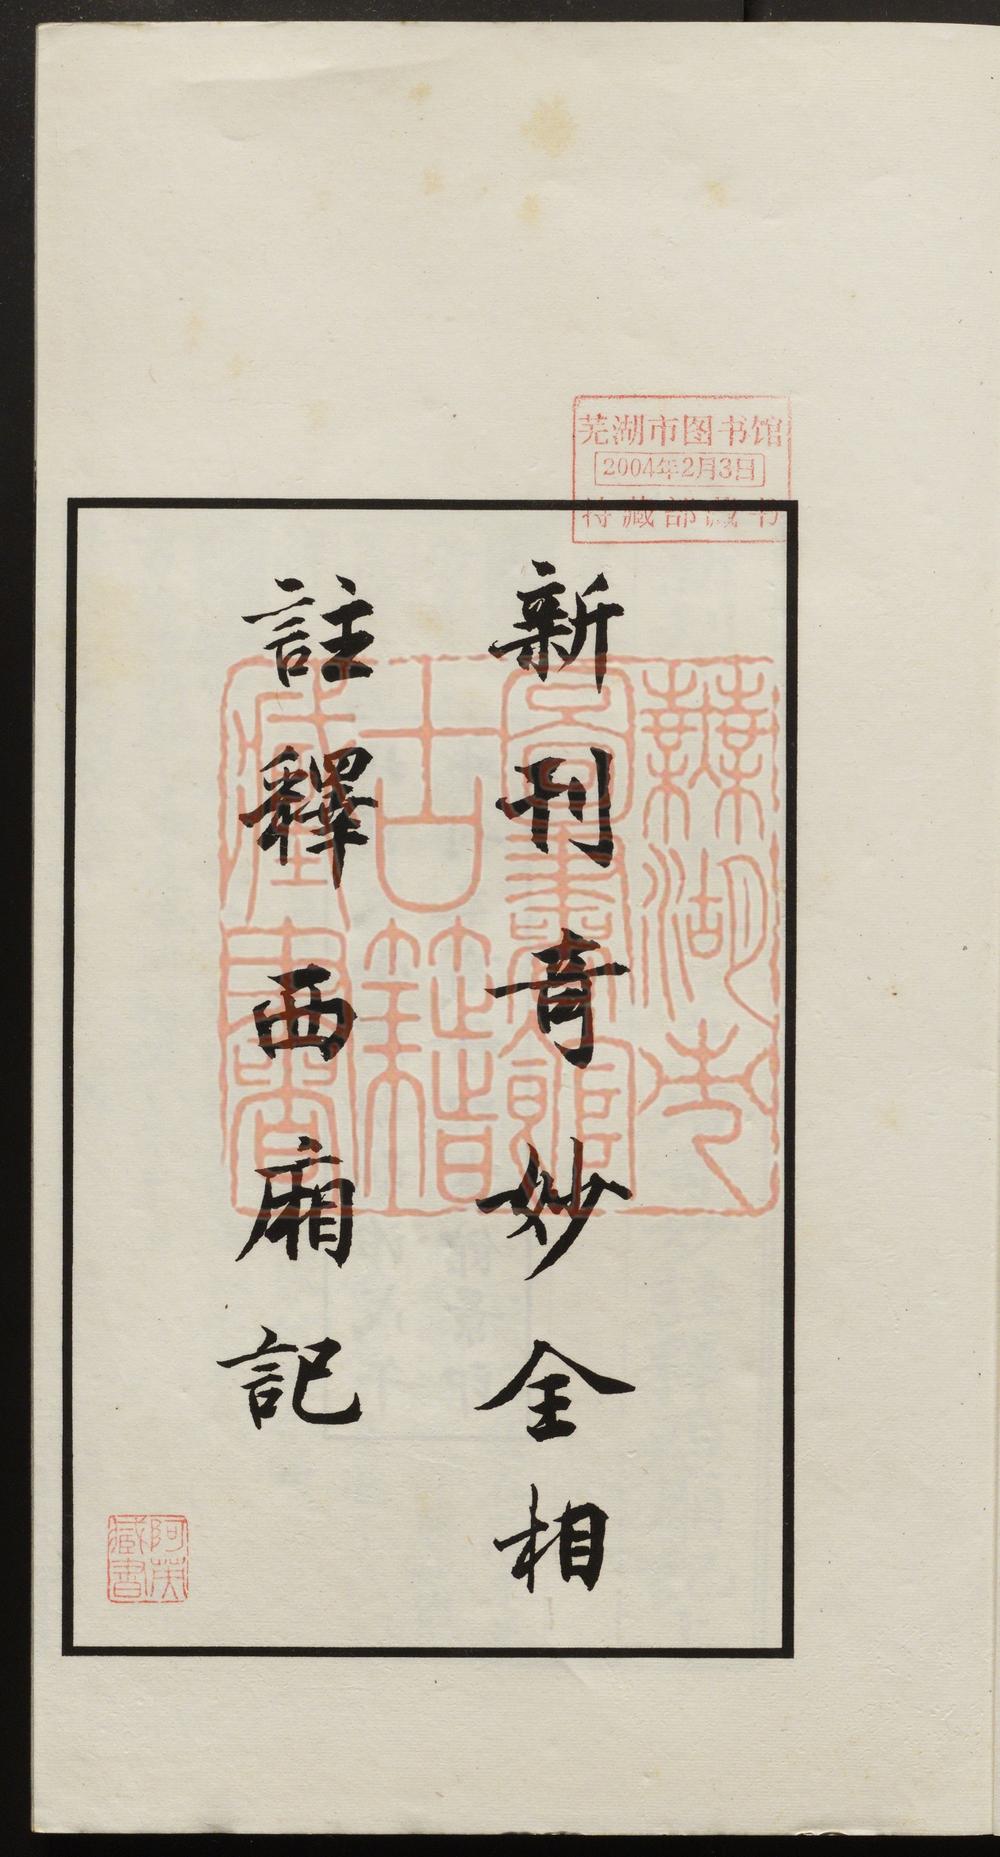 芜湖市图书馆
2004年2月3日
特藏部藏书
新刊奇妙全相
註釋西廂記
蕪湖市
圖書館
古籍
藏書
阿英
藏書